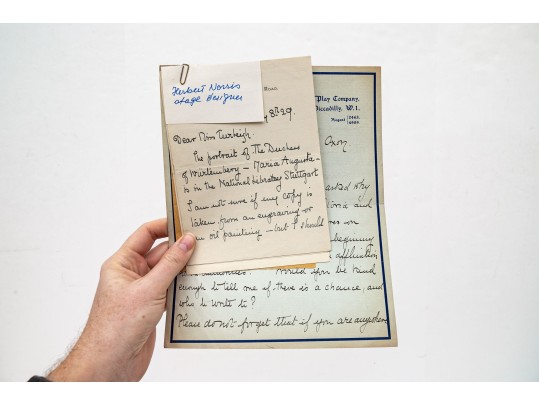 Herbert Norris
stage designer
8th 29.
Dear Miss
The portrait of The Duchess
of Würtemberg – Maria Augusta –
is in the National Library Stuttgart
I am not sure if my copy is
taken from an engraving or
an oil painting – but I should
Play Company.
Piccadilly, W.1.
Regent
Oxon
asked why
and
on
beginning
affliction
Would you be kind
enough to tell one if there is a chance, and
who to write to?
Please do not forget that if you are anywhere